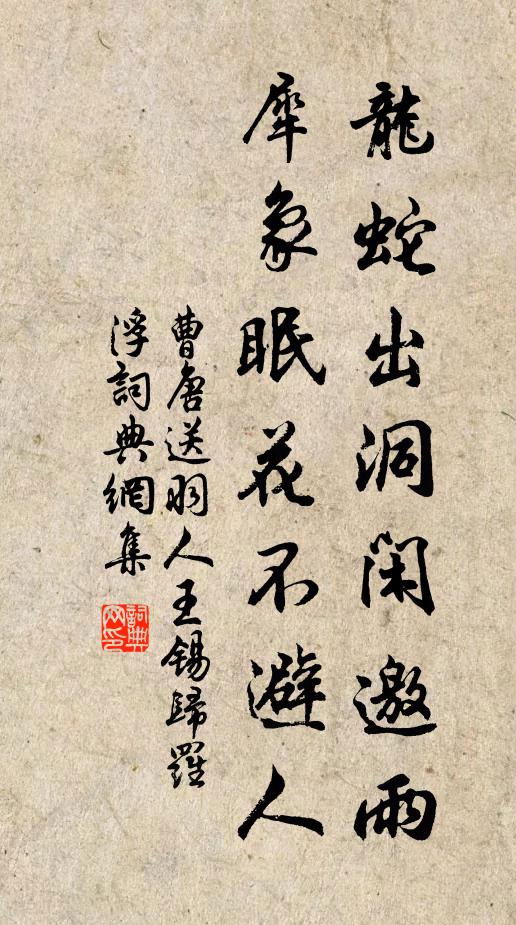 龍蛇出洞閑邀雨
犀象眠花不避人
曹唐送羽人王錫歸羅
浮詞典網集
詞典
网印